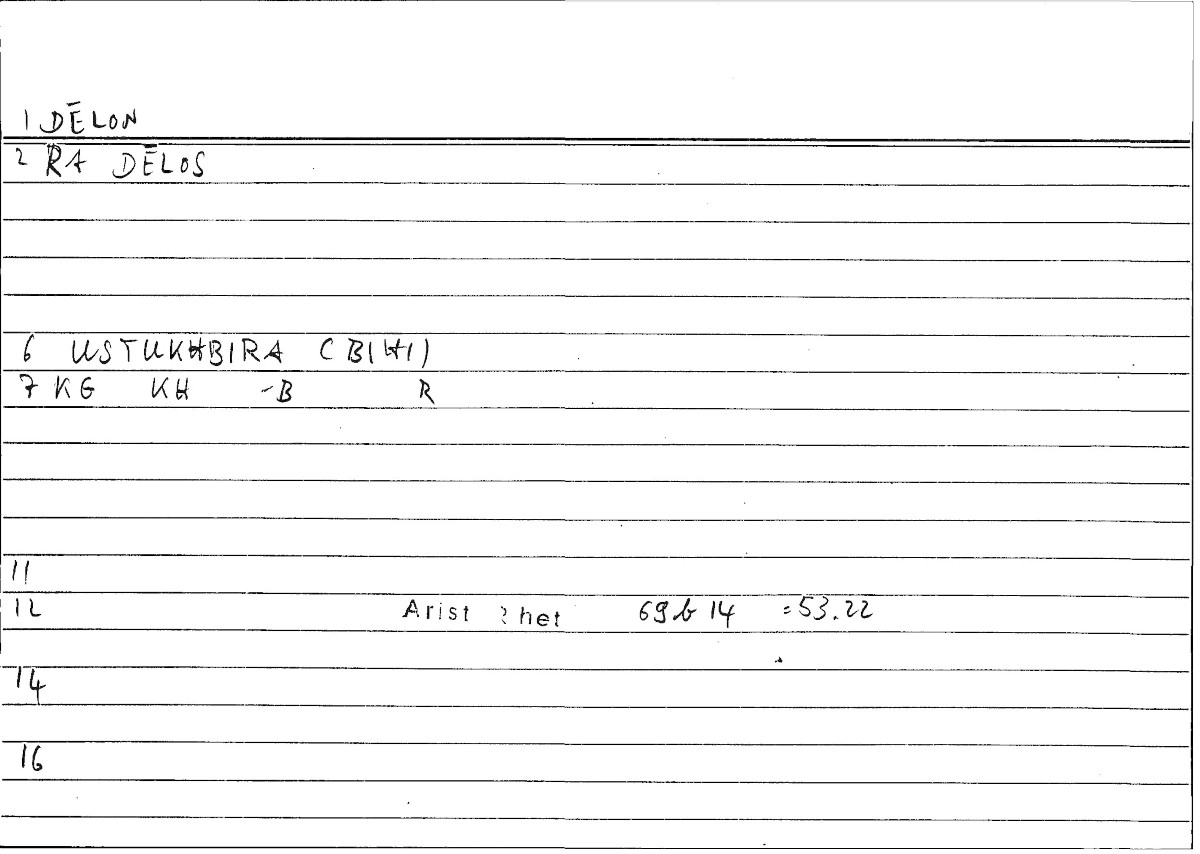 1 DĒLON
2 RA DĒLOS
6 USTUKHBIRA (BIHI)
7 KG KH -B R
11
12 Arist Rhet 69b 14 =53.22
14
16